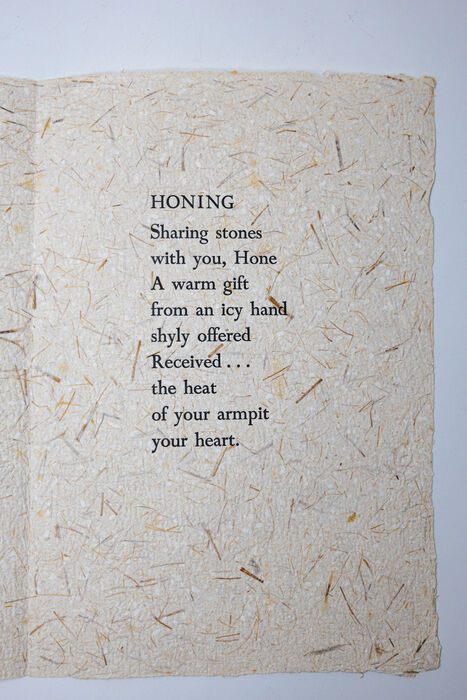 HONING
Sharing stones
with you, Hone
A warm gift
from an icy hand
shyly offered
Received...
the heat
of your armpit
your heart.